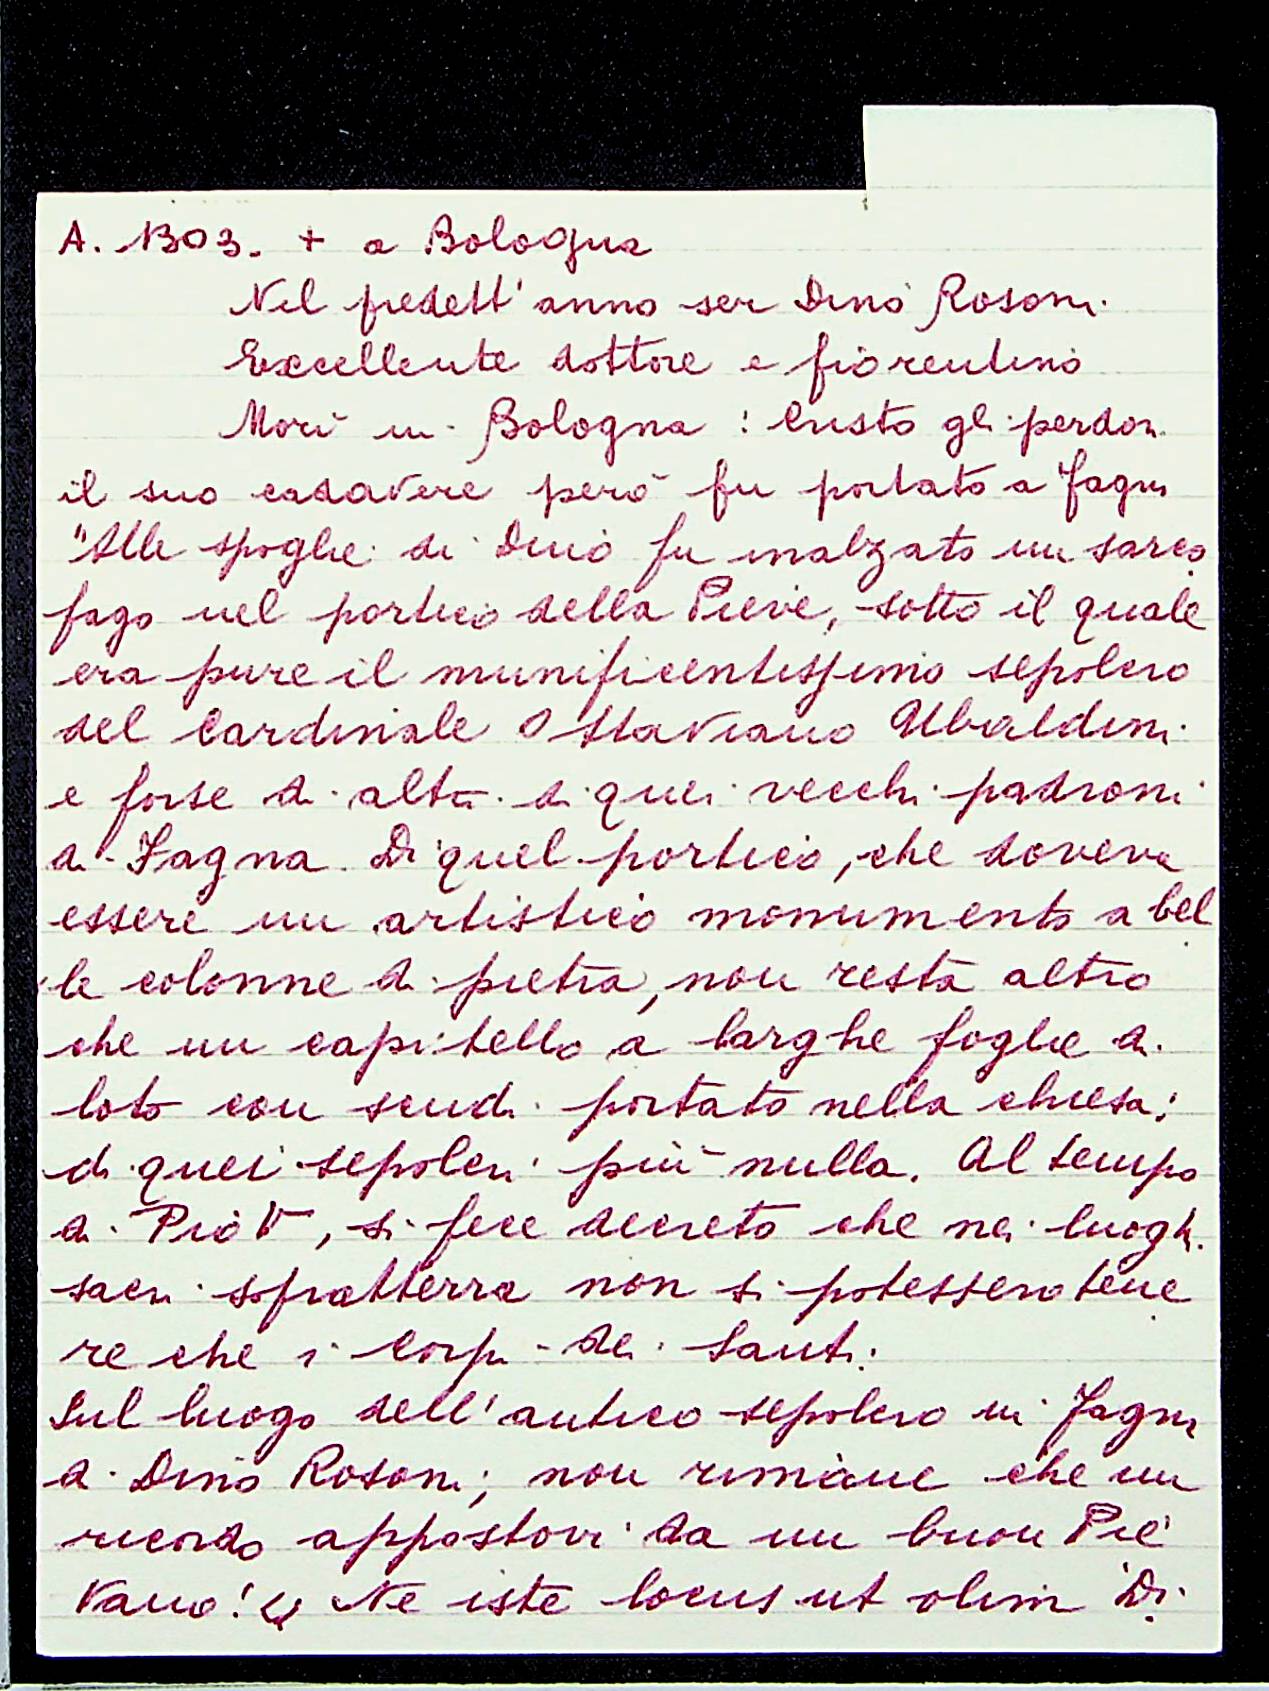 A. 1303. + a Bologna
Nel predett' anno ser Dino Rosoni
Excellente dottore e fiorentino
Morì in Bologna : Cristo gli perdon
il suo cadavere però fu portato a Fagna
"Alle spoglie di Dino fu inalzato un sarco
fago nel portico della Pieve, sotto il quale
era pure il munificentissimo sepolcro
del Cardinale Ottaviano Ubaldini
e forse di altri di quei vecchi padroni
di Fagna. Di quel portico, che doveva
essere un artistico monumento a bel
le colonne di pietra, non resta altro
che un capitello a larghe foglie di
loto con scudi portato nella chiesa;
di quei sepolcri più nulla. Al tempo
di Pio V, si fece decreto che nei luoghi
sacri sopratterra non si potessero tene
re che i Corpi dei Santi.
Sul luogo dell'antico sepolcro in Fagna
di Dino Rosoni; non rimane che un
ricordo appostovi da un buon Pie
vano! Ne iste locus ut olim Di